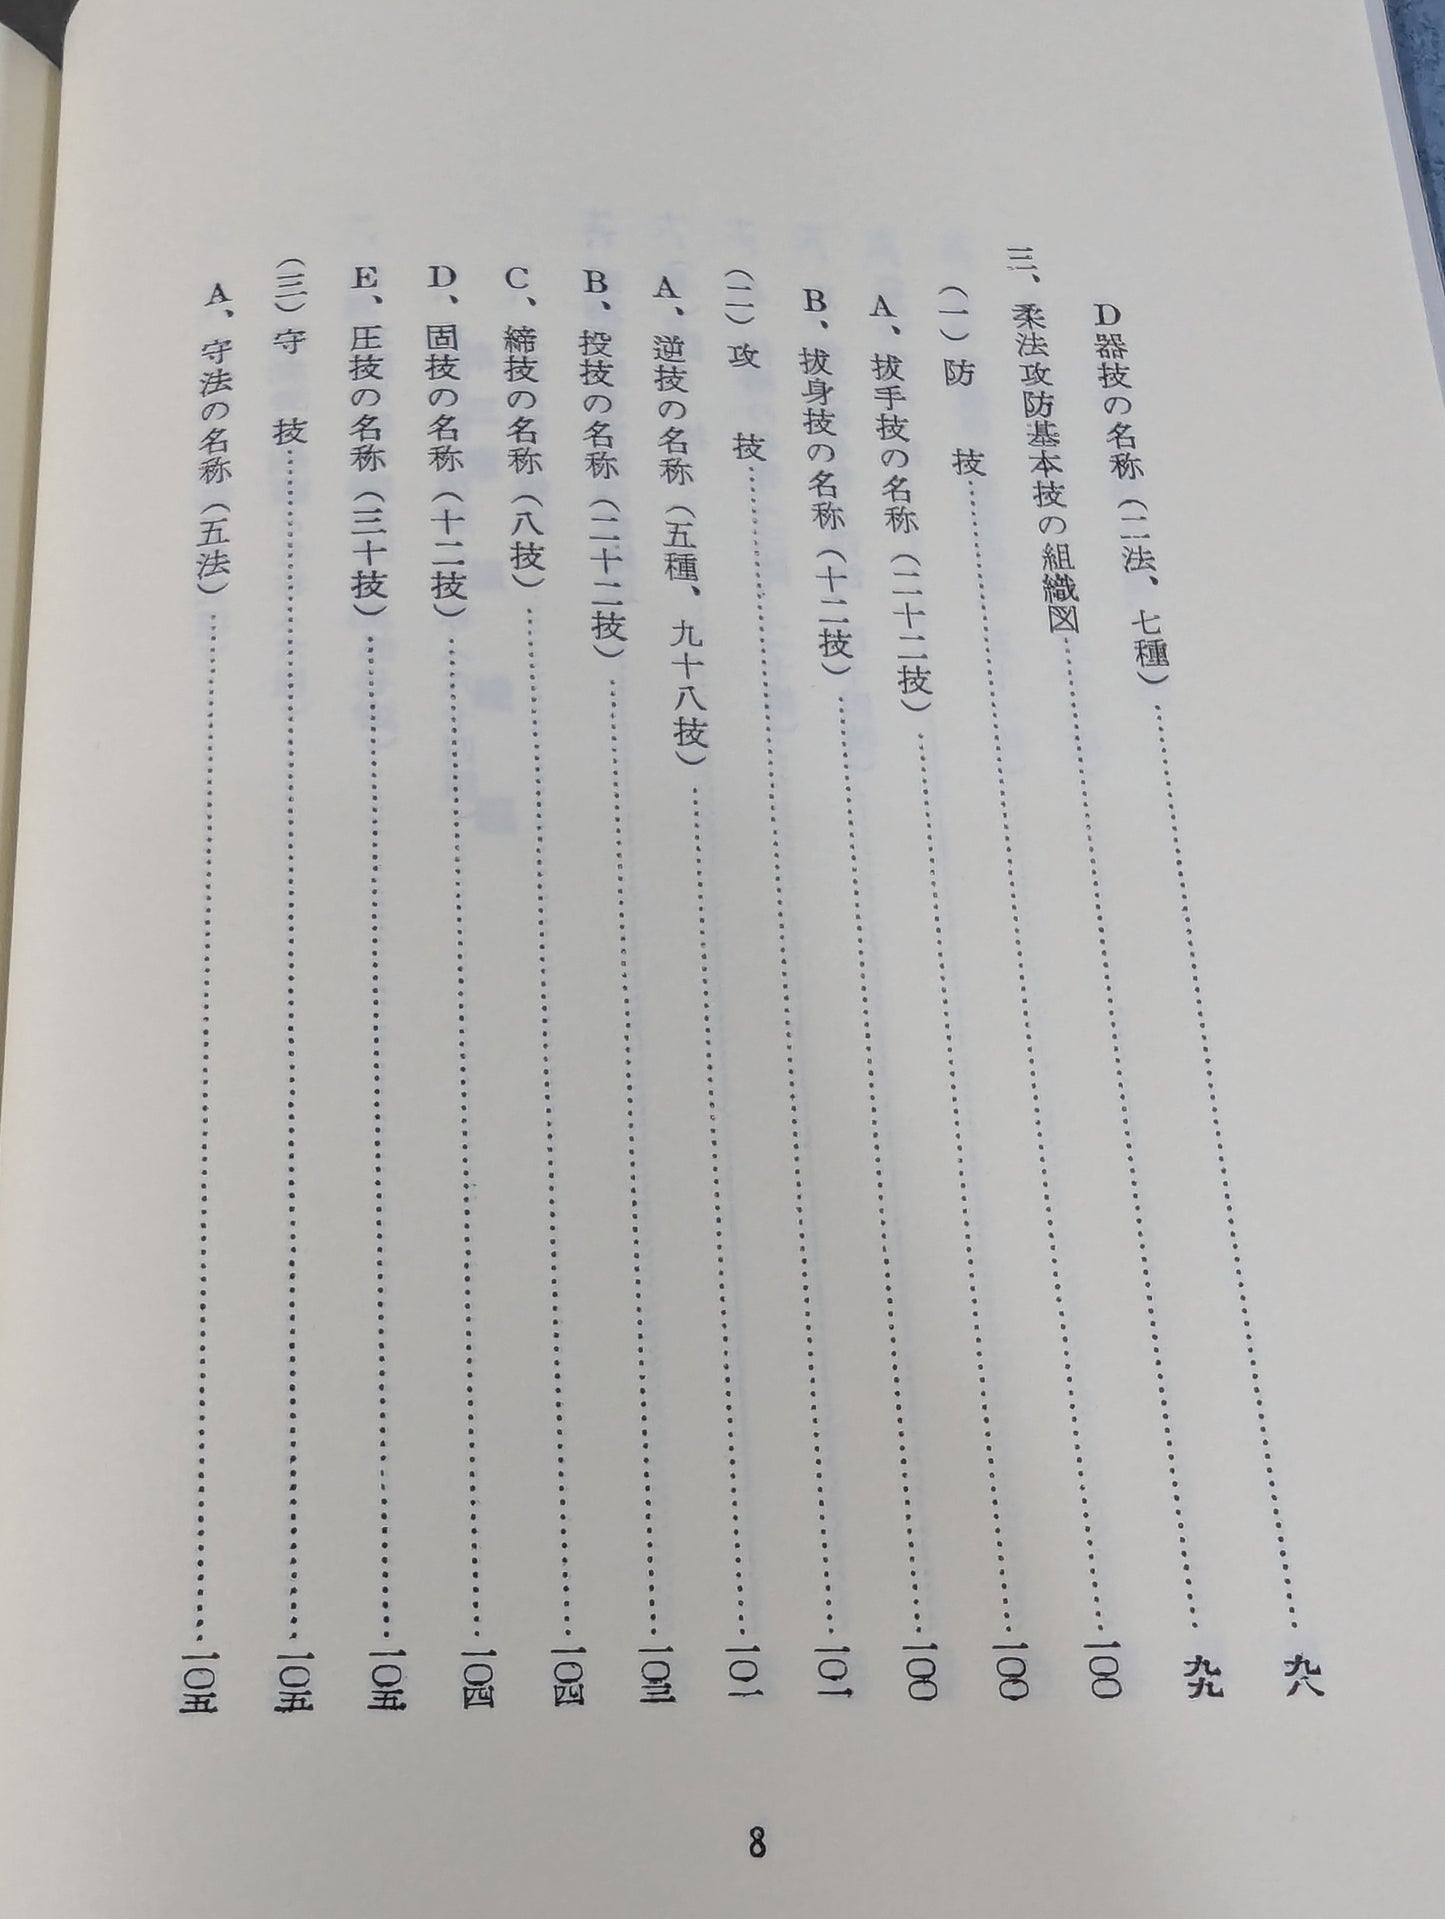 D器技の名称（二法、七種）……九八
三、柔法攻防基本技の組織図……九九
（一）防　技……一〇〇
A、拔手技の名称（二十二技）……一〇〇
B、拔身技の名称（十二技）……一〇〇
（二）攻　技……一〇一
A、逆技の名称（五種、九十八技）……一〇一
B、投技の名称（二十二技）……一〇三
C、締技の名称（八技）……一〇四
D、固技の名称（十二技）……一〇四
E、圧技の名称（三十技）……一〇五
（三）守　技……一〇五
A、守法の名称（五法）……一〇五
8